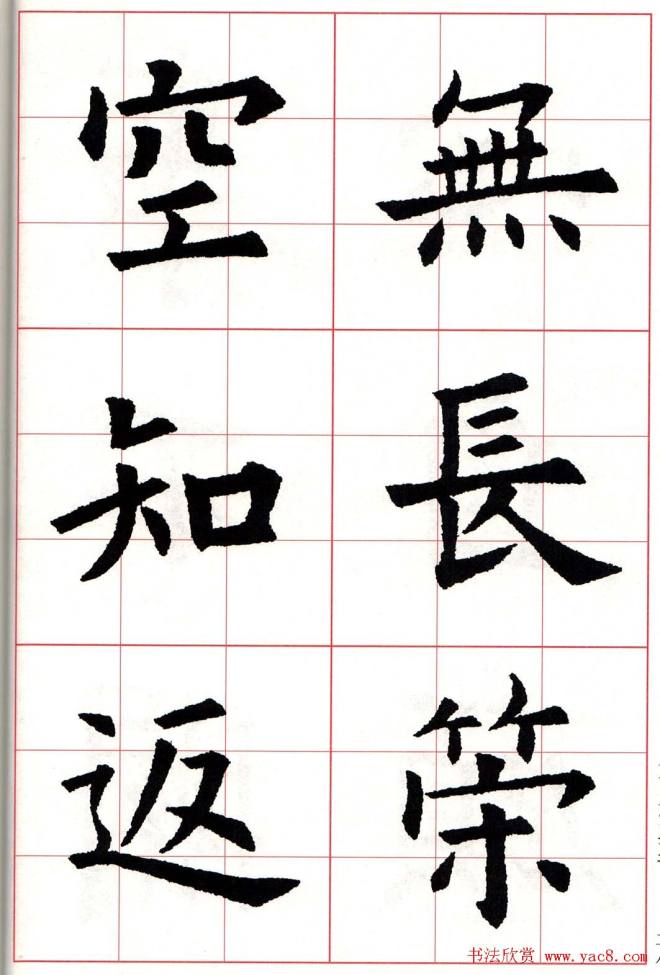 無長策
空知返
书法欣赏 www.yac8.com